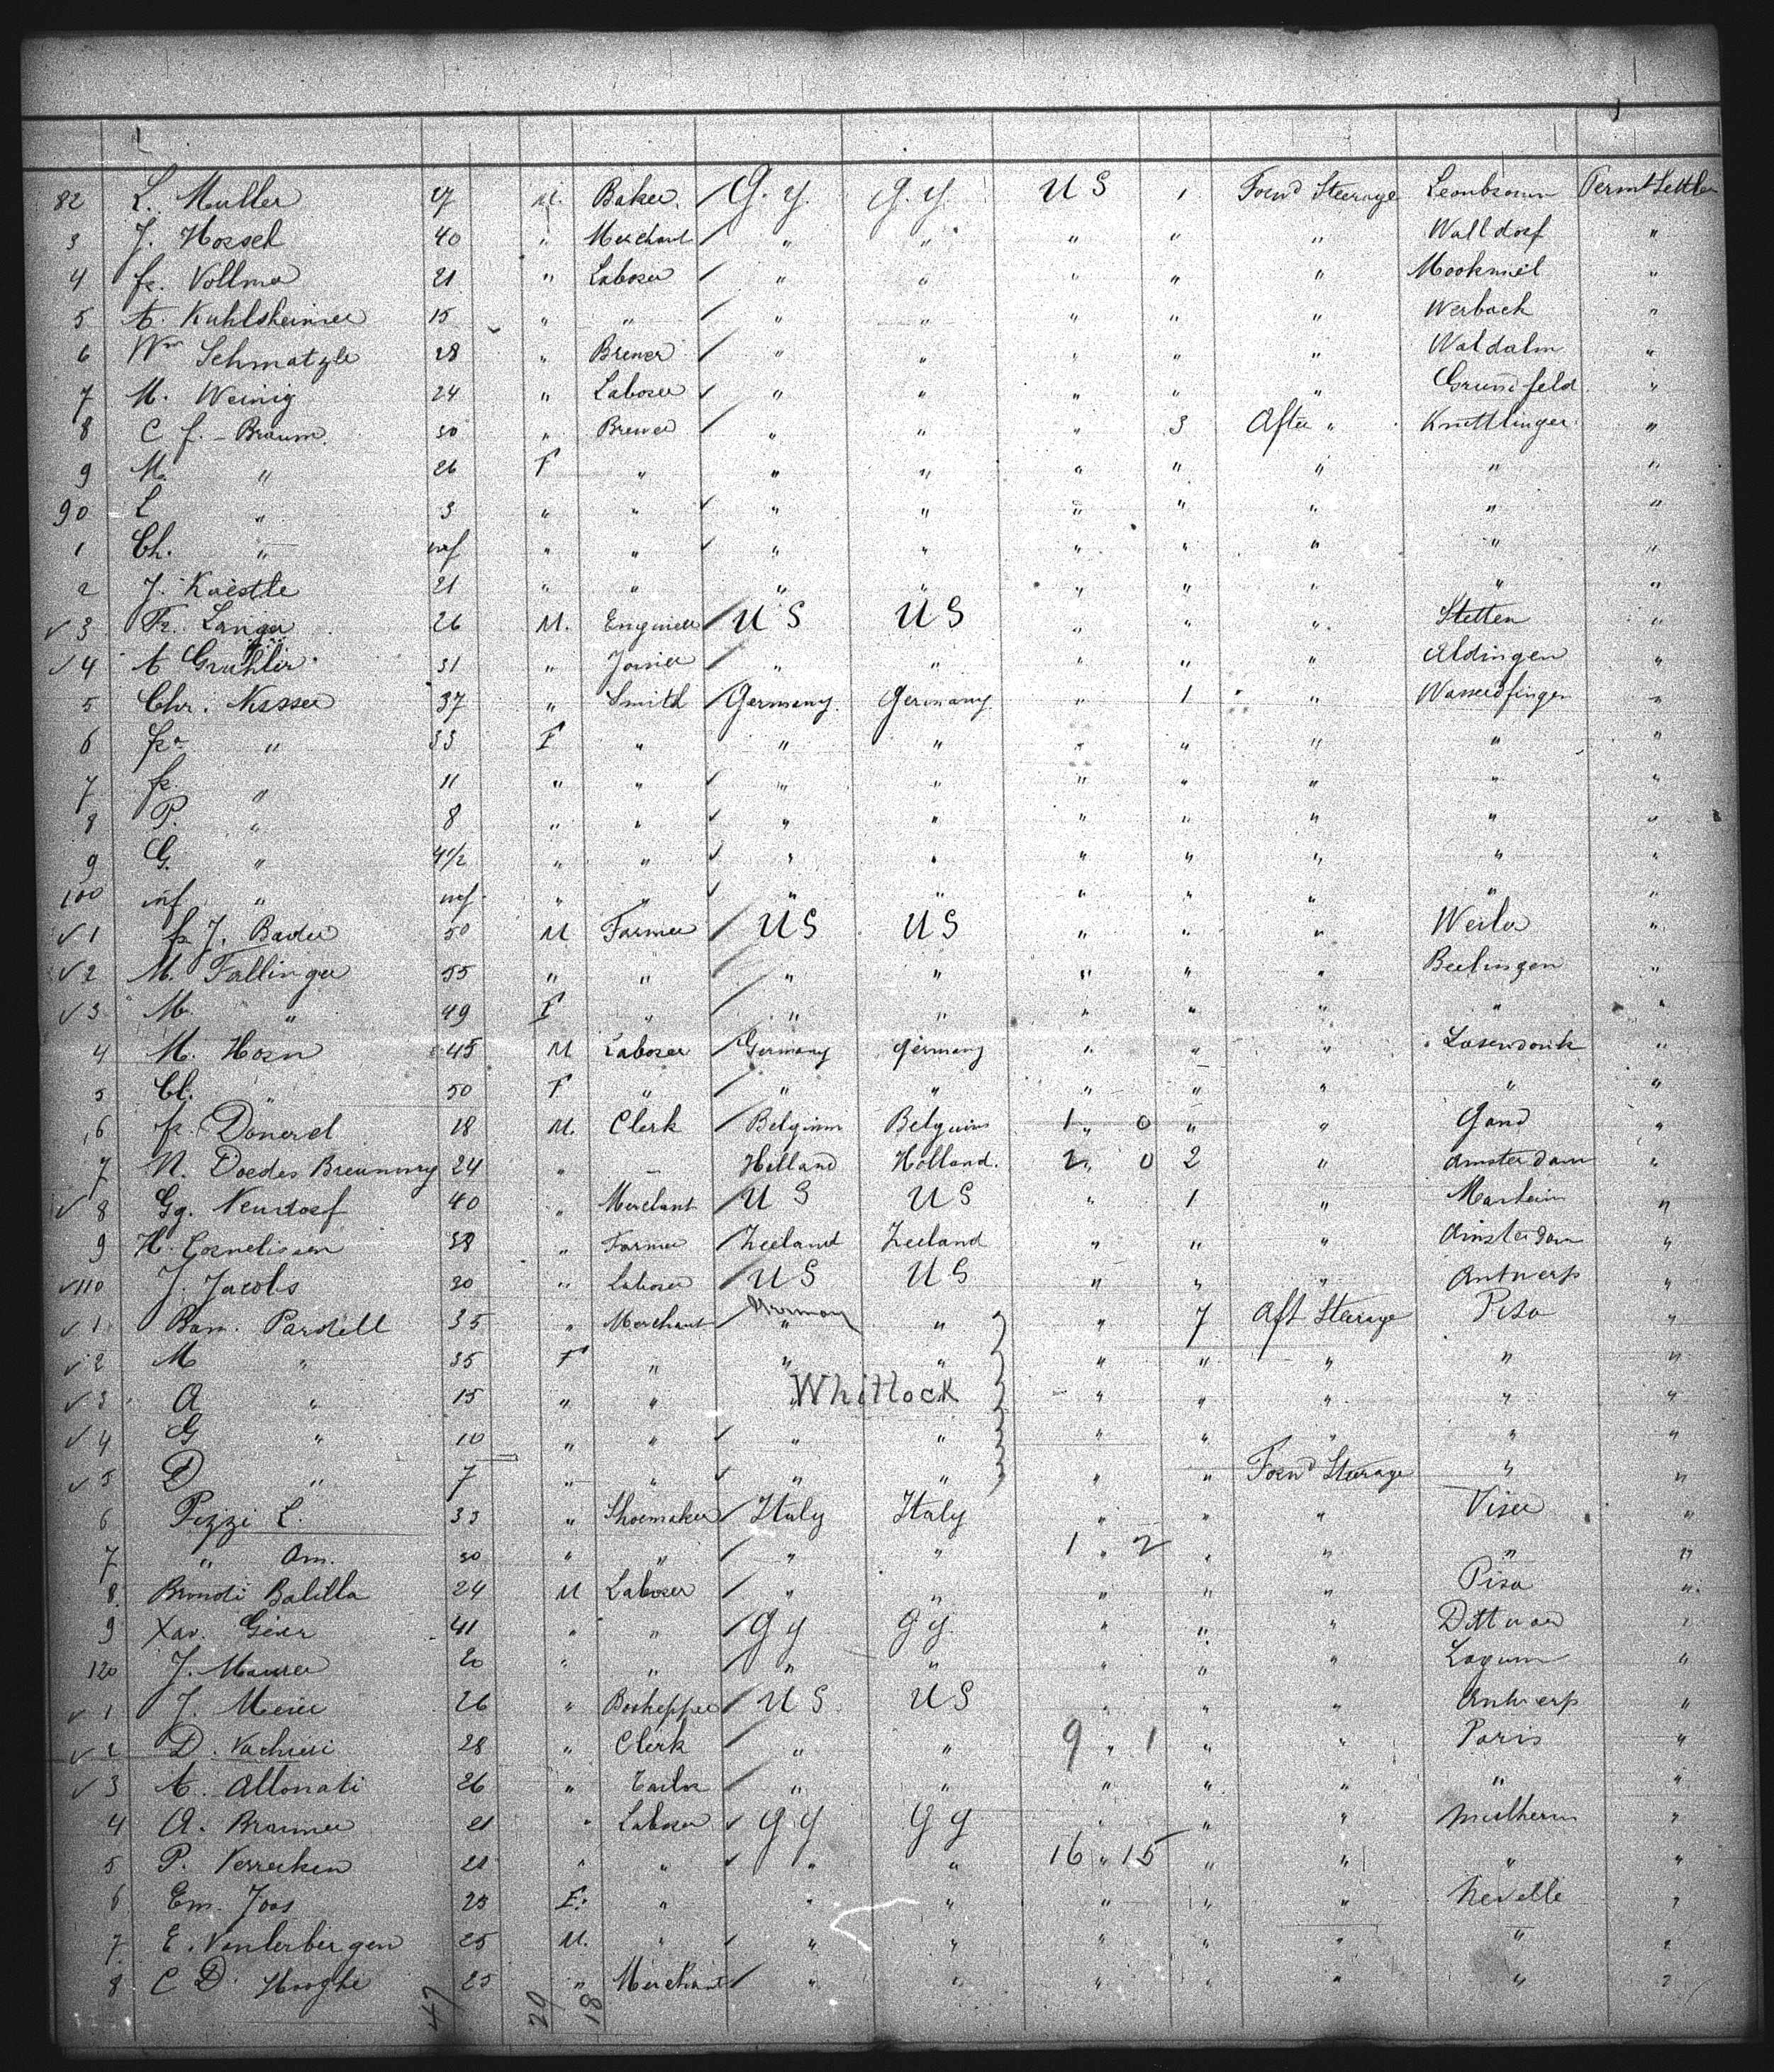 82 L. Muller 27 M. Baker G.y. G.y. US 1 Forwd Steerage Permt Settler
3 J. Hossch 40 " Merchant " " " " " Walldorf "
4 fr. Vollmer 21 " Laborer " " " " "
5 A. Kuhlsheimer 15 " " " " " " " Werbach "
6 Wm Schmatzle 28 " Brewer " " " " " Waldalm "
7 M. Weinig 24 " Laborer " " " " " Grunsfeld "
8 C f. Braum. 30 " Brewer " " " 3 After " Knittlinger "
9 M. " 26 F " " " " " " " "
90 L " 3 " " " " " " " " "
1 Ch. " inf " " " " " " " " "
2 J. Kaestle 21 " " " " " " " " "
3 Fr. Langer 26 M. Engineer US US " " " Stetten "
4 A Gruhler 31 " Joiner " " " " " Aldingen "
5 Chr. Nasser 37 " Smith Germany Germany " 1 " Wasserdfingen "
6 fr " 33 F " " " " " " " "
7 fr. " 11 " " " " " " " " "
8 P. " 8 " " " " " " " " "
9 G. " 4 1/2 " " " " " " " " "
100 inf " inf " " " " " " " " "
1 fr J. Bader 50 M Farmer US US " " " Werler "
2 M. Fallinger 55 " " " " " " " "
3 M. " 49 F " " " " " " " "
4 M. Horn 45 M Laborer Germany Germany " " " "
5 Cl. " 50 F " " " " " " " "
6 fr. Donerd 18 M. Clerk Belgium Belguim 1 " 0 " " Gand "
7 N. Doedes Breunning 24 " – Holland Holland. 2 " 0 2 " Amsterdam "
8 Gg. Neudorf 40 " Merchant US US " 1 " Manheim "
9 H. Cornelissen 38 " Farmer Zeeland Zeeland " " " Amsterdam "
110 J. Jacobs 30 " Laborer US US " " " Antwerp "
1 Bam. Pardell 35 " Merchant German " " " 7 Aft Steerage Pisa "
2 M " 35 F " " " " " " " "
3 A " 15 " " Whitlock " " " " "
4 G " 10 " " " " " " " " "
5 D " 7 " " " " " " Forwd Steerage " "
6 Pizzi L. 33 " Shoemaker Italy Italy " " " Viser "
7 " Am. 30 " " " " 1 " 2 " " " "
8 Brondi Balilla 24 M Laborer " " " " " Pisa "
9 Xav. Geier 41 " " Gy Gy " " " "
120 J. Maurer 20 " " " " " " " "
1 J. Meier 26 " Bookepper US US " " " Antwerp "
2 D. Vachieri 28 " Clerk " " 9 " 1 " " Paris "
3 A. Allonati 26 " Tailor " " " " " " "
4 A. Brauner 21 " Laborer Gy Gy " " " Mulheim "
5 P. Verrecken 21 " " " " 16 " 15 " " " "
6 Em. Joos 25 F. " " " " " " Nevelle "
7 E. Vanlerbergen 25 M. " " " " " " " "
8 C D. Hooghe 25 " Merchant " " " " " " "
47 29 18